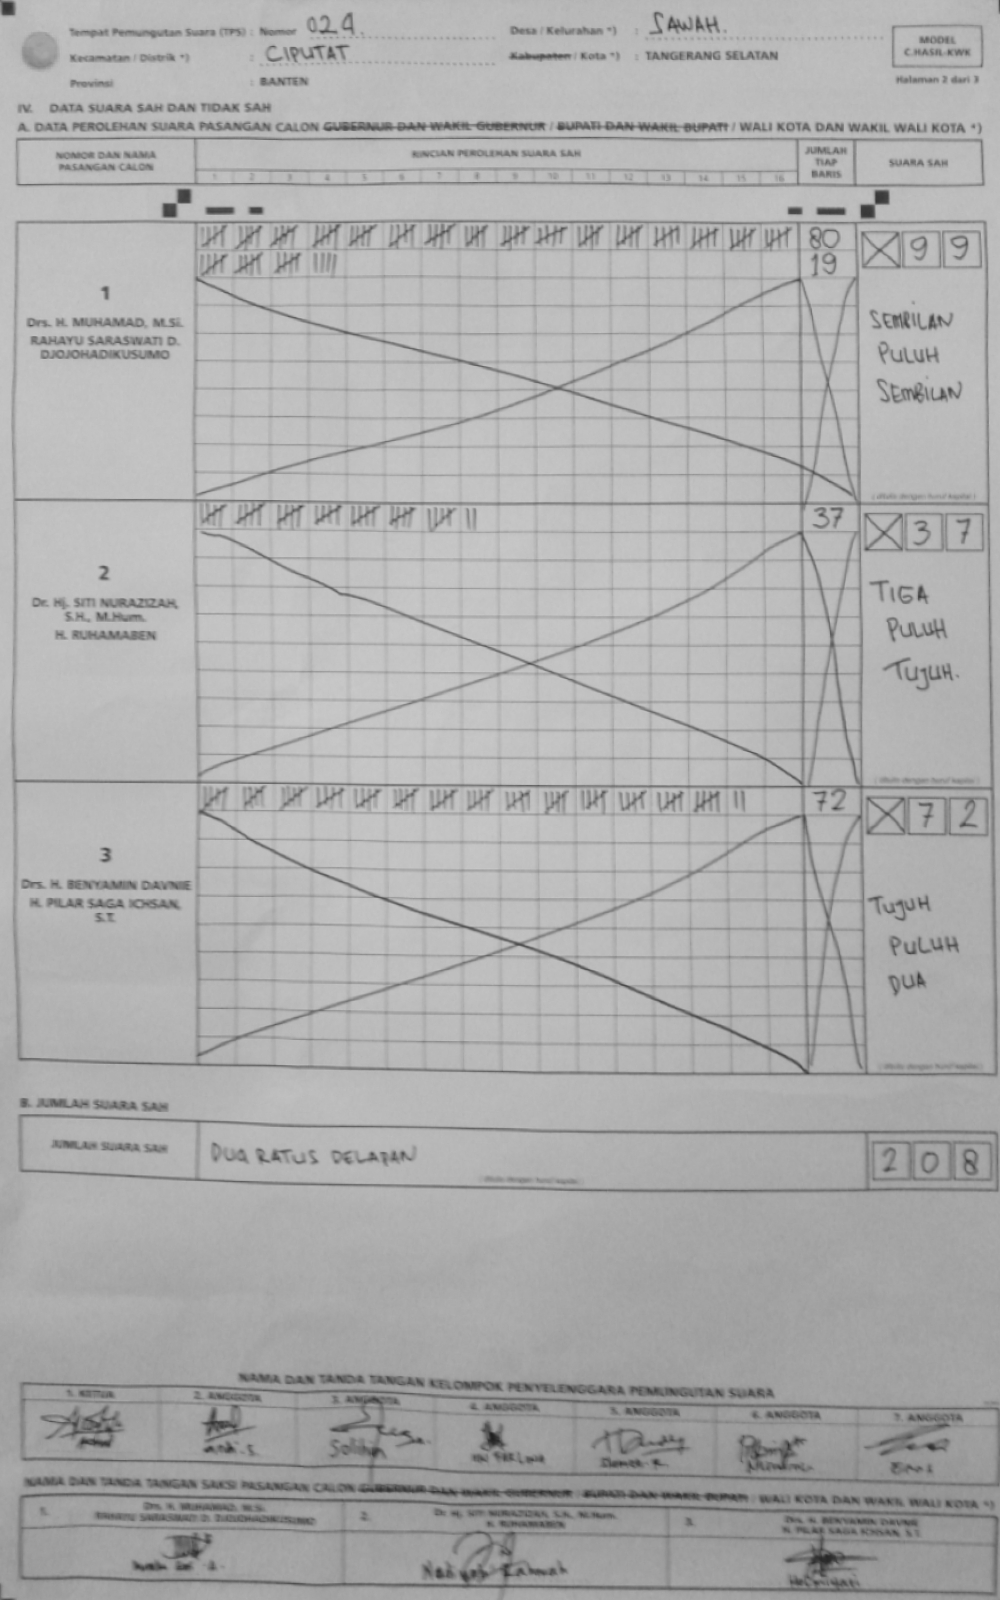 Tempat Pemungutan Suara (TPS) : Nomor 024. Desa / Kelurahan *) : SAWAH.
Kecamatan / Distrik *) : CIPUTAT Kabupaten / Kota *) : TANGERANG SELATAN
Provinsi : BANTEN
MODEL
C.HASIL-KWK
Halaman 2 dari 3
IV. DATA SUARA SAH DAN TIDAK SAH
A. DATA PEROLEHAN SUARA PASANGAN CALON GUBERNUR DAN WAKIL GUBERNUR / BUPATI DAN WAKIL BUPATI / WALI KOTA DAN WAKIL WALI KOTA *)
NOMOR DAN NAMA PASANGAN CALON
RINCIAN PEROLEHAN SUARA SAH
1 2 3 4 5 6 7 8 9 10 11 12 13 14 15 16
JUMLAH TIAP BARIS
SUARA SAH
1
Drs. H. MUHAMAD, M.Si.
RAHAYU SARASWATI D.
DJOJOHADIKUSUMO
80
19
9 9
SEMBILAN
PULUH
SEMBILAN
(ditulis dengan huruf kapital)
2
Dr. Hj. SITI NURAZIZAH,
S.H., M.Hum.
H. RUHAMABEN
37
3 7
TIGA
PULUH
TUJUH.
(ditulis dengan huruf kapital)
3
Drs. H. BENYAMIN DAVNIE
H. PILAR SAGA ICHSAN,
S.T.
72
7 2
TUJUH
PULUH
DUA
(ditulis dengan huruf kapital)
B. JUMLAH SUARA SAH
JUMLAH SUARA SAH DUA RATUS DELAPAN 2 0 8
(ditulis dengan huruf kapital)
NAMA DAN TANDA TANGAN KELOMPOK PENYELENGGARA PEMUNGUTAN SUARA
1. KETUA 2. ANGGOTA 3. ANGGOTA 4. ANGGOTA 5. ANGGOTA 6. ANGGOTA 7. ANGGOTA
Solihin
NAMA DAN TANDA TANGAN SAKSI PASANGAN CALON GUBERNUR DAN WAKIL GUBERNUR / BUPATI DAN WAKIL BUPATI / WALI KOTA DAN WAKIL WALI KOTA *)
1. Drs. H. MUHAMAD, M.Si.
RAHAYU SARASWATI D. DJOJOHADIKUSUMO
2. Dr. Hj. SITI NURAZIZAH, S.H., M.Hum.
H. RUHAMABEN
3. Drs. H. BENYAMIN DAVNIE
H. PILAR SAGA ICHSAN, S.T.